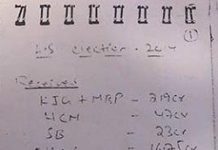 1
L.S election - 2014
Received
KJG + MRP - 219cr
HCM - 47cr
SB - 23cr